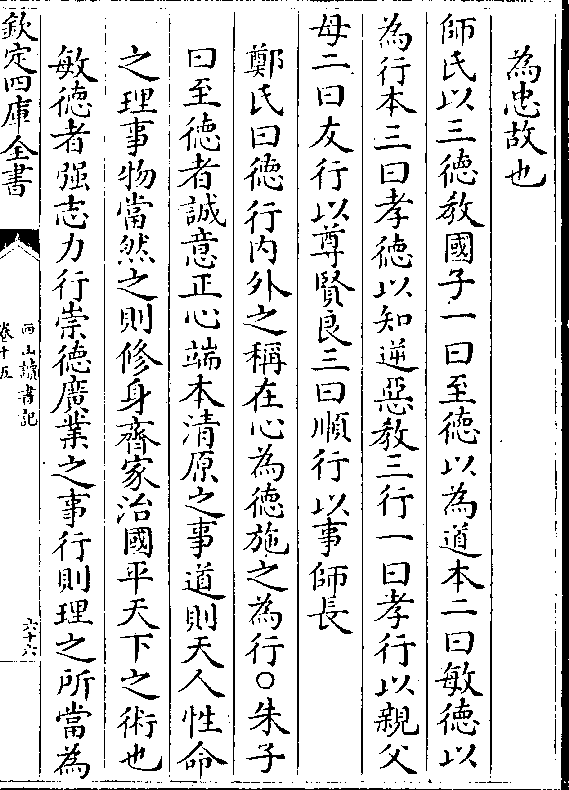 為忠故也
師氏以三德教國子一曰至德以為道本二曰敏德以
為行本三曰孝德以知逆惡教三行一曰孝行以親父
母二曰友行以尊賢良三曰順行以事師長
鄭氏曰德行内外之稱在心為德施之為行○朱子
曰至德者誠意正心端本清原之事道則天人性命
之理事物當然之則修身齊家治國平天下之術也
敏德者强志力行崇德廣業之事行則理之所當為
欽定四庫全書
西山讀書記
卷十五
六十六